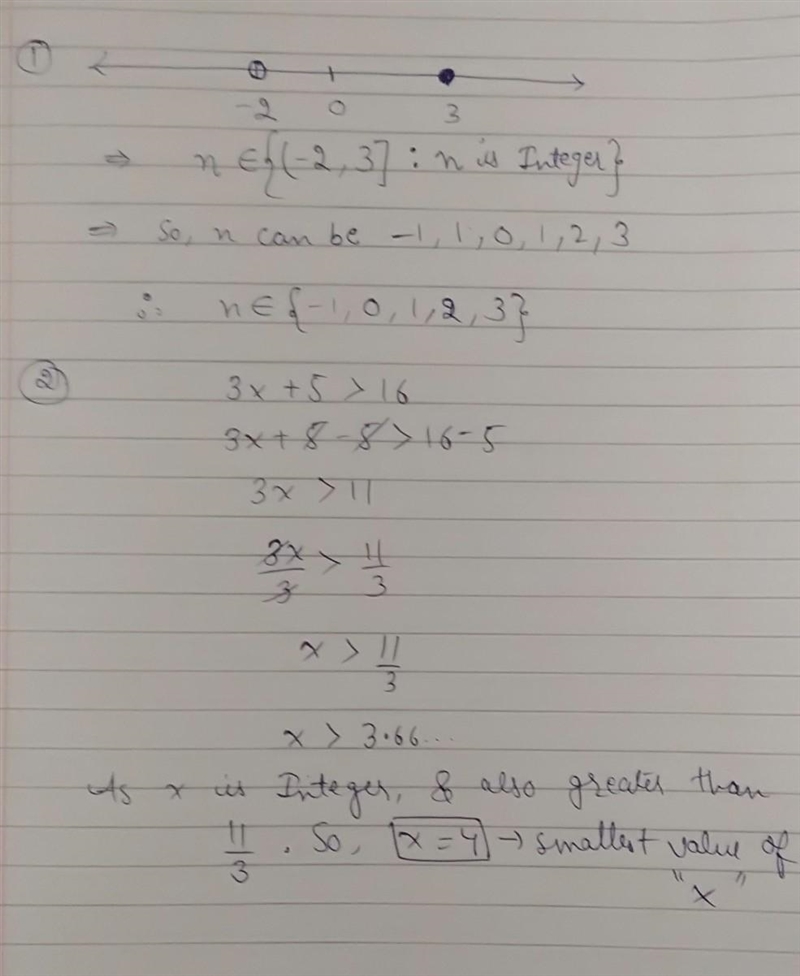 ①
-2 0 3
⇒ n ∈ {(-2, 3] : n is Integer}
⇒ So, n can be -1, 1, 0, 1, 2, 3
∴ n ∈ {-1, 0, 1, 2, 3}
② 3x + 5 > 16
3x + 5 - 5 > 16 - 5
3x > 11
3x/3 > 11/3
x > 11/3
x > 3.66...
As x is Integer, & also greater than
11/3 . So, x = 4 → smallest value of
"x"